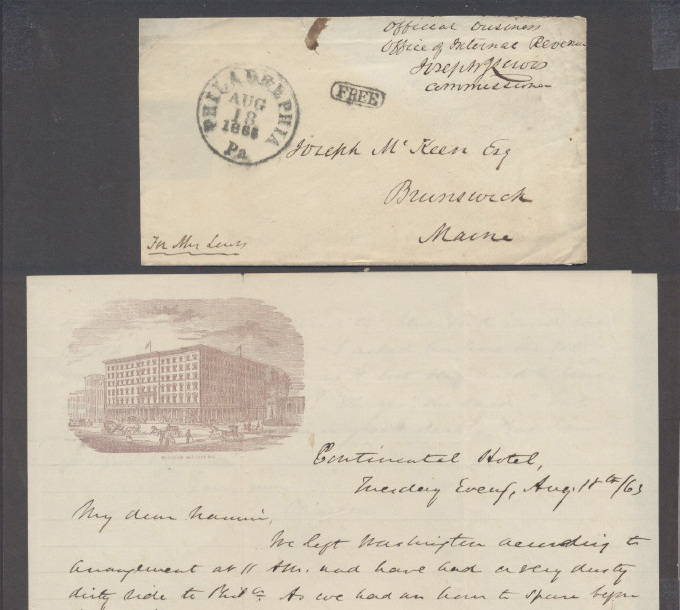 Official business
Office of Internal Revenue
Joseph J Lewis
Commissioner
PHILADELPHIA
AUG
18
1863
Pa
FREE
Joseph McKeen Esq
Brunswick
Maine
For Mrs Lewis
Continental Hotel,
Tuesday Eveng, Aug. 18th/63
My dear
We left Washington according to
arrangement at 11 AM. and have had a very dusty
dirty ride to Phila. As we had an hour to spare before